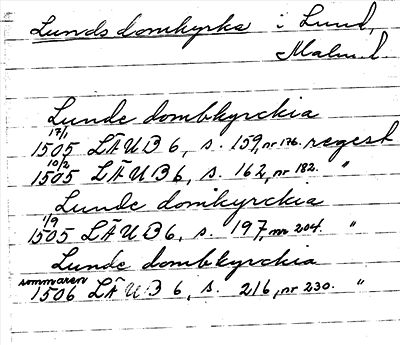 Lunds domkyrka i Lund,
Malm.l
Lunde dombkyrckia
17/1
1505 LÄUB 6, s. 159, nr 176. regest
10/2
1505 LÄUB 6, s. 162, nr 182. "
Lunde domkyrckia
1/9
1505 LÄUB 6, s. 197, nr 204. "
Lunde dombkyrckia
sommaren
1506 LÄUB 6, s. 216, nr 230. "